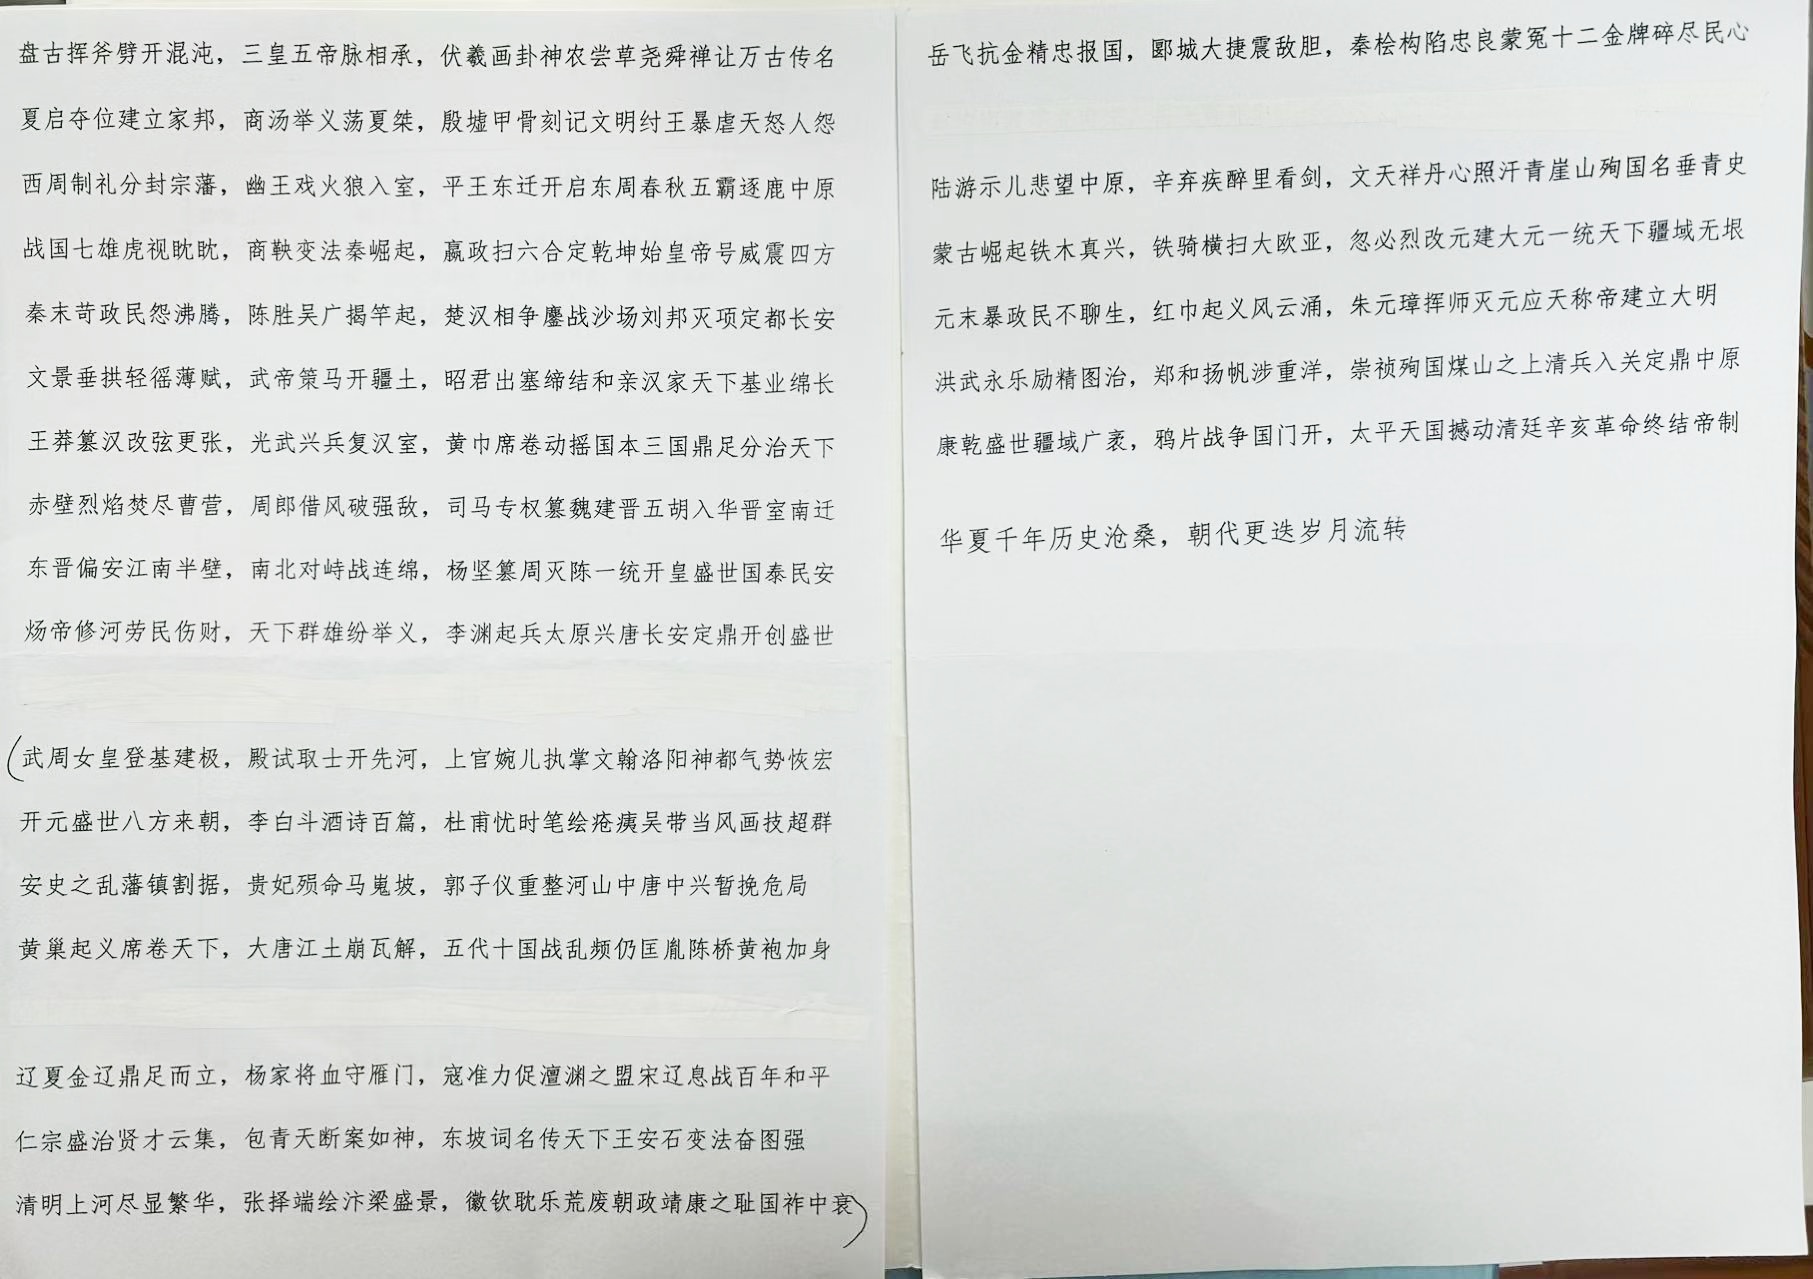 盘古挥斧劈开混沌，三皇五帝脉相承，伏羲画卦神农尝草尧舜禅让万古传名
夏启夺位建立家邦，商汤举义荡夏桀，殷墟甲骨刻记文明纣王暴虐天怒人怨
西周制礼分封宗藩，幽王戏火狼入室，平王东迁开启东周春秋五霸逐鹿中原
战国七雄虎视眈眈，商鞅变法秦崛起，嬴政扫六合定乾坤始皇帝号威震四方
秦末苛政民怨沸腾，陈胜吴广揭竿起，楚汉相争鏖战沙场刘邦灭项定都长安
文景垂拱轻徭薄赋，武帝策马开疆土，昭君出塞缔结和亲汉家天下基业绵长
王莽篡汉改弦更张，光武兴兵复汉室，黄巾席卷动摇国本三国鼎足分治天下
赤壁烈焰焚尽曹营，周郎借风破强敌，司马专权篡魏建晋五胡入华晋室南迁
东晋偏安江南半壁，南北对峙战连绵，杨坚篡周灭陈一统开皇盛世国泰民安
炀帝修河劳民伤财，天下群雄纷举义，李渊起兵太原兴唐长安定鼎开创盛世
（武周女皇登基建极，殿试取士开先河，上官婉儿执掌文翰洛阳神都气势恢宏
开元盛世八方来朝，李白斗酒诗百篇，杜甫忧时笔绘疮痍吴带当风画技超群
安史之乱藩镇割据，贵妃殒命马嵬坡，郭子仪重整河山中唐中兴暂挽危局
黄巢起义席卷天下，大唐江土崩瓦解，五代十国战乱频仍匡胤陈桥黄袍加身
辽夏金辽鼎足而立，杨家将血守雁门，寇准力促澶渊之盟宋辽息战百年和平
仁宗盛治贤才云集，包青天断案如神，东坡词名传天下王安石变法奋图强
清明上河尽显繁华，张择端绘汴梁盛景，徽钦耽乐荒废朝政靖康之耻国祚中衰）
岳飞抗金精忠报国，郾城大捷震敌胆，秦桧构陷忠良蒙冤十二金牌碎尽民心
陆游示儿悲望中原，辛弃疾醉里看剑，文天祥丹心照汗青崖山殉国名垂青史
蒙古崛起铁木真兴，铁骑横扫大欧亚，忽必烈改元建大元一统天下疆域无垠
元末暴政民不聊生，红巾起义风云涌，朱元璋挥师灭元应天称帝建立大明
洪武永乐励精图治，郑和扬帆涉重洋，崇祯殉国煤山之上清兵入关定鼎中原
康乾盛世疆域广袤，鸦片战争国门开，太平天国撼动清廷辛亥革命终结帝制
华夏千年历史沧桑，朝代更迭岁月流转